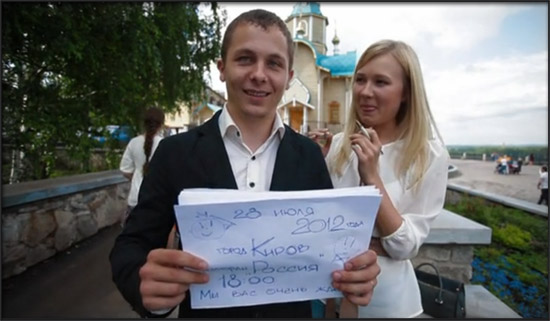 28 июля
2012 год
город Киров
Россия
18:00
Мы вас очень